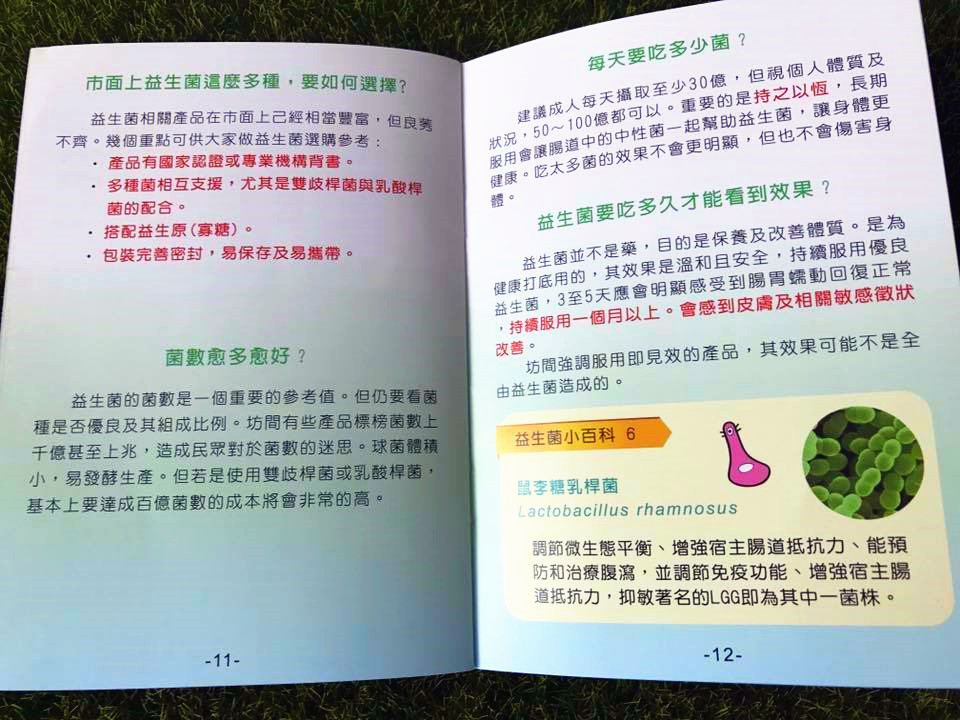 市面上益生菌這麼多種，要如何選擇?
益生菌相關產品在市面上己經相當豐富，但良莠
不齊。幾個重點可供大家做益生菌選購參考：
・產品有國家認證或專業機構背書。
・多種菌相互支援，尤其是雙歧桿菌與乳酸桿
菌的配合。
・搭配益生原(寡糖)。
・包裝完善密封，易保存及易攜帶。
菌數愈多愈好？
益生菌的菌數是一個重要的參考值。但仍要看菌
種是否優良及其組成比例。坊間有些產品標榜菌數上
千億甚至上兆，造成民眾對於菌數的迷思。球菌體積
小，易發酵生產。但若是使用雙歧桿菌或乳酸桿菌，
基本上要達成百億菌數的成本將會非常的高。
-11-
每天要吃多少菌？
建議成人每天攝取至少30億，但視個人體質及
狀況，50～100億都可以。重要的是持之以恆，長期
服用會讓腸道中的中性菌一起幫助益生菌，讓身體更
健康。吃太多菌的效果不會更明顯，但也不會傷害身
體。
益生菌要吃多久才能看到效果？
益生菌並不是藥，目的是保養及改善體質。是為
健康打底用的，其效果是溫和且安全，持續服用優良
益生菌，3至5天應會明顯感受到腸胃蠕動回復正常
，持續服用一個月以上。會感到皮膚及相關敏感徵狀
改善。
坊間強調服用即見效的產品，其效果可能不是全
由益生菌造成的。
益生菌小百科 6
鼠李糖乳桿菌
Lactobacillus rhamnosus
調節微生態平衡、增強宿主腸道抵抗力、能預
防和治療腹瀉，並調節免疫功能、增強宿主腸
道抵抗力，抑敏著名的LGG即為其中一菌株。
-12-